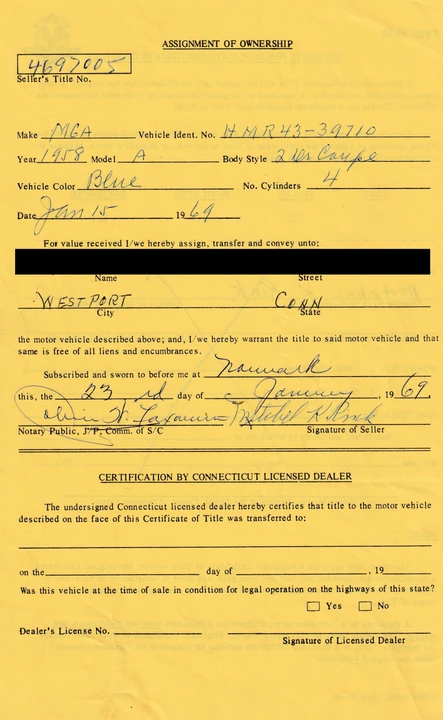 ASSIGNMENT OF OWNERSHIP
4697005
Seller's Title No.
Make MGA Vehicle Ident. No. HMR43-39710
Year 1958 Model A Body Style 2 Dr Coupe
Vehicle Color Blue No. Cylinders 4
Date Jan 15 1969
For value received I/we hereby assign, transfer and convey unto:
Name Street
WESTPORT CONN
City State
the motor vehicle described above; and, I/we hereby warrant the title to said motor vehicle and that
same is free of all liens and encumbrances.
Subscribed and sworn to before me at Norwalk
this, the 23 rd day of January, 1969.
Notary Public, J/P, Comm. of S/C Signature of Seller
CERTIFICATION BY CONNECTICUT LICENSED DEALER
The undersigned Connecticut licensed dealer hereby certifies that title to the motor vehicle
described on the face of this Certificate of Title was transferred to:
on the day of , 19
Was this vehicle at the time of sale in condition for legal operation on the highways of this state?
Yes No
Dealer's License No.
Signature of Licensed Dealer